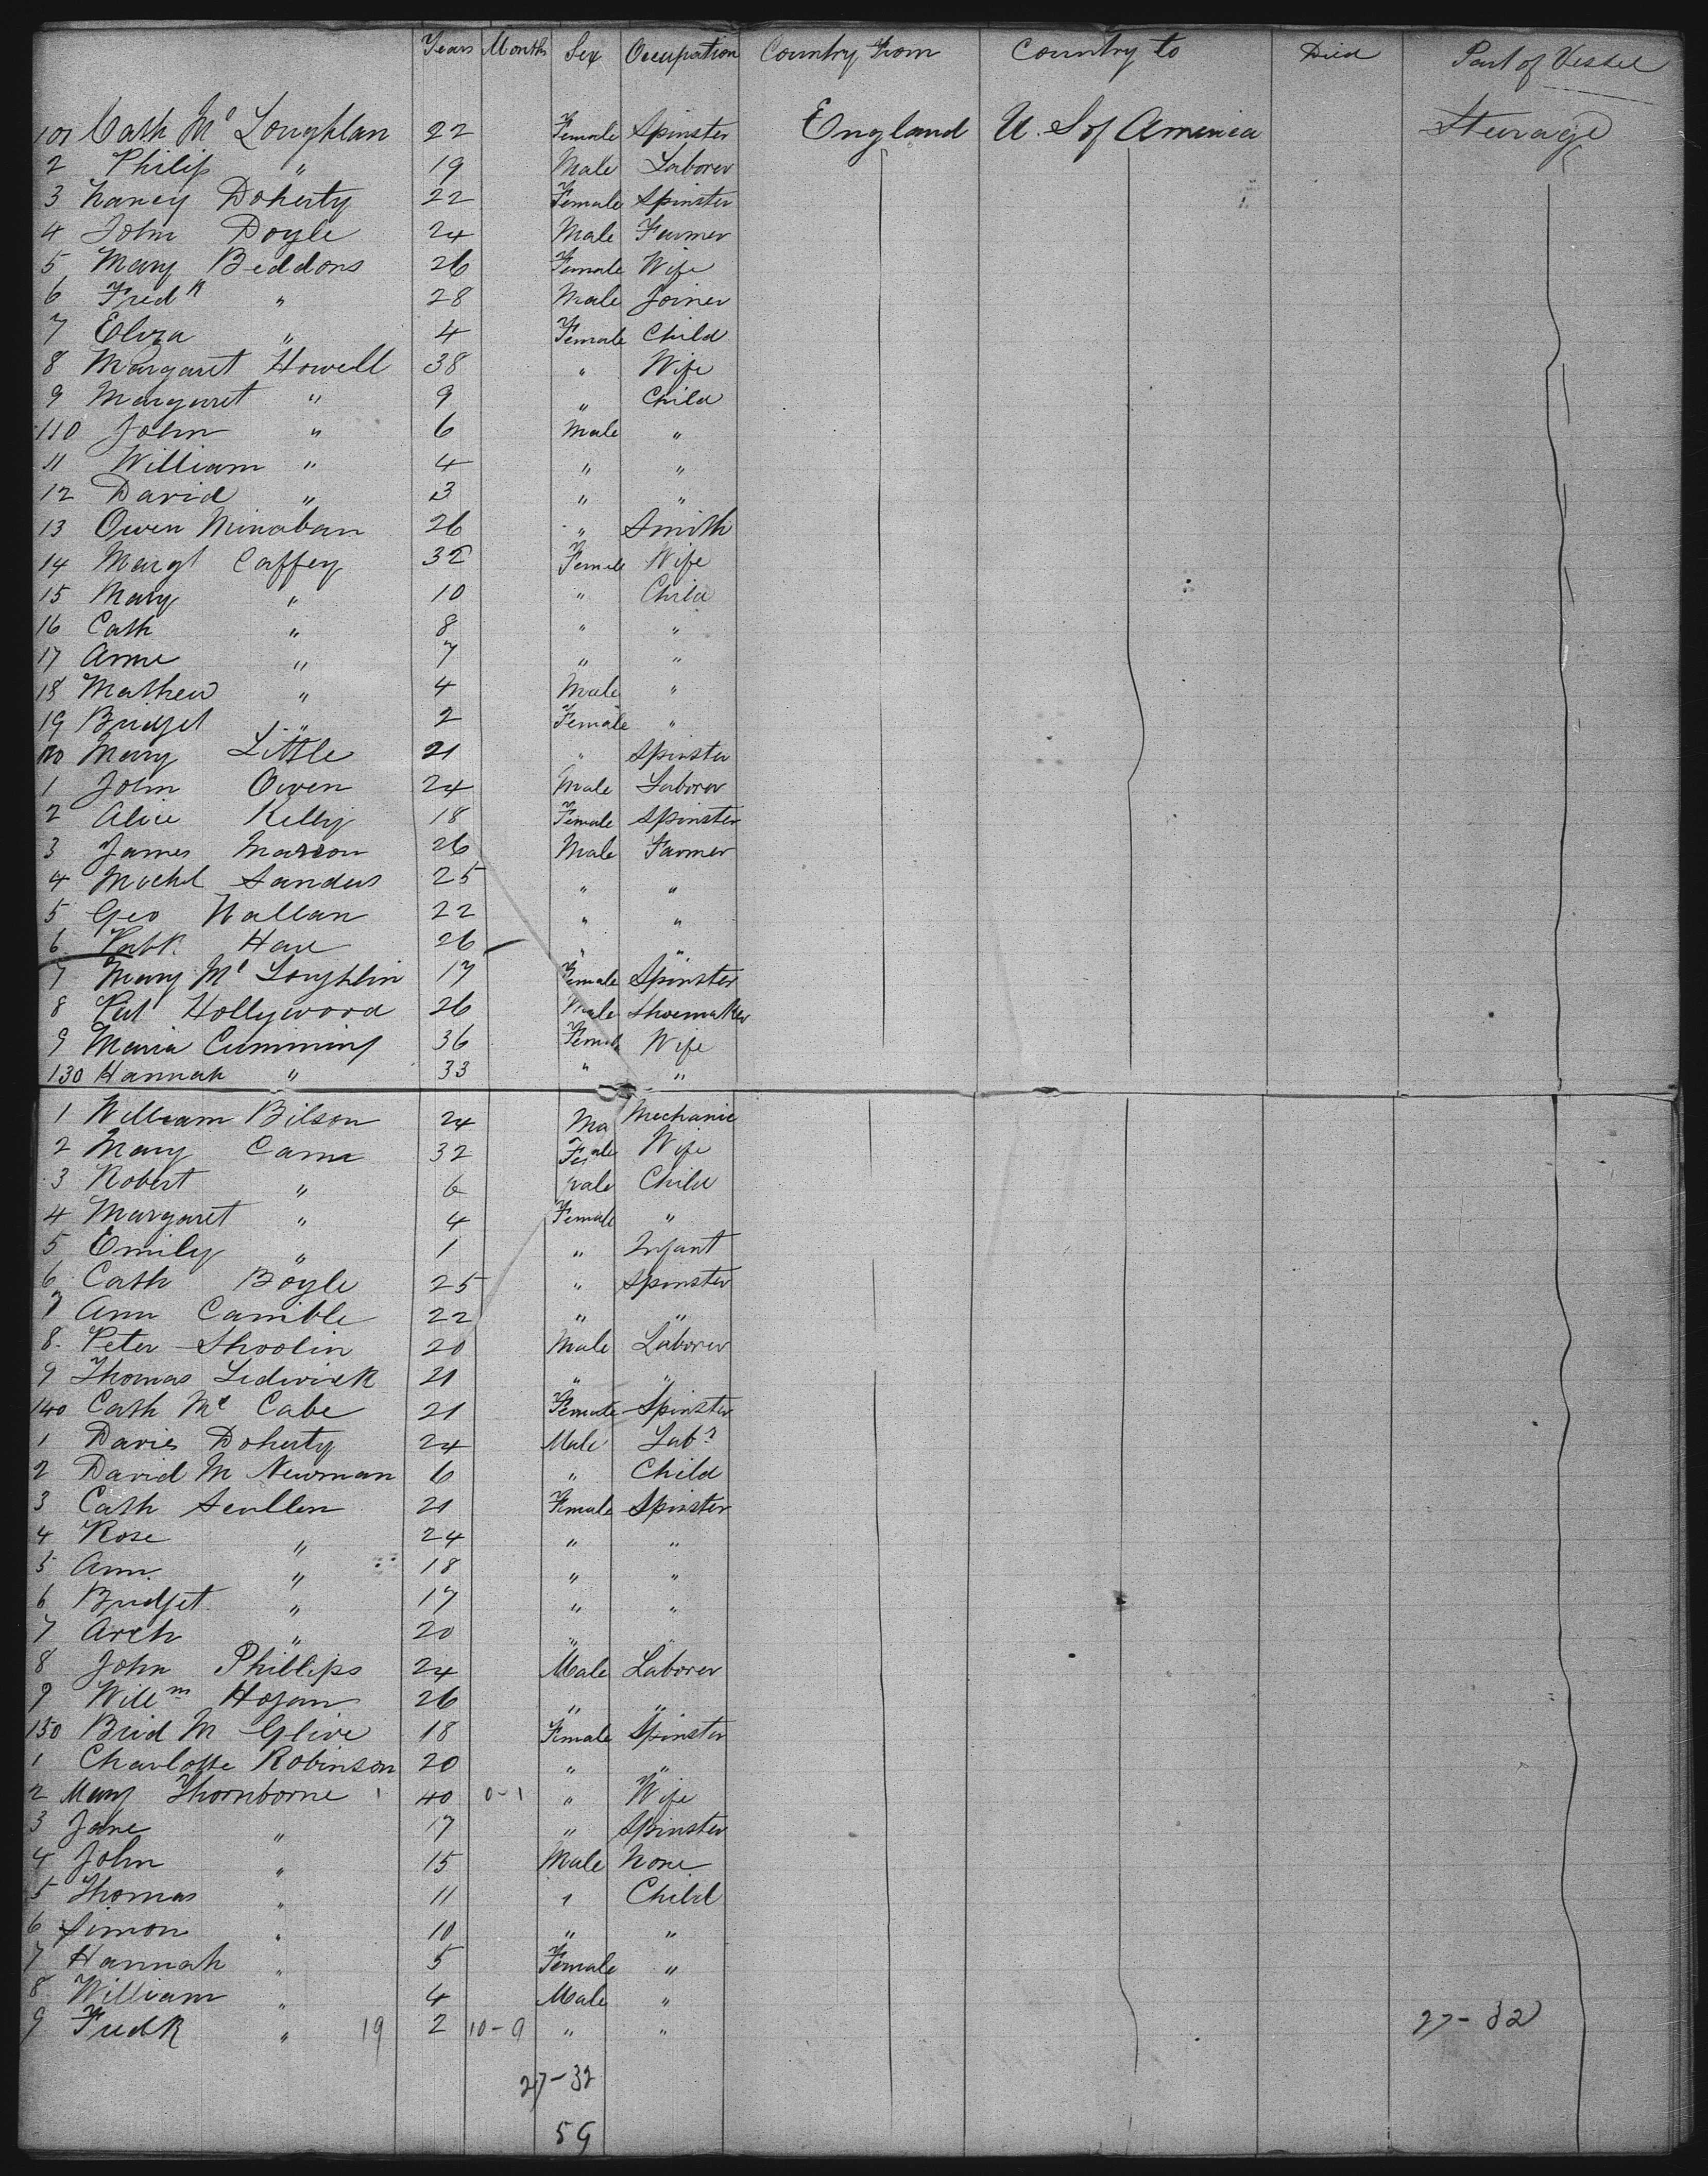 Years Months Sex Occupation Country From Country to Died Part of Vessel
101 Cath Mc Loughlan 22 Female Spinster England U. S of America Sterage
2 Philip " 19 Male Laborer
3 Nancy Doherty 22 Female Spinster
4 John Doyle 24 Male Farmer
5 Mary Beddons 26 Female Wife
6 Fredk " 28 Male Joiner
7 Eliza " 4 Female Child
8 Margaret Howell 38 " Wife
9 Margaret " 9 " Child
110 John " 6 Male "
11 William " 4 " "
12 David " 3 " "
13 Owen Minahan 26 " Smith
14 Margt Caffey 32 Female Wife
15 Mary " 10 " Child
16 Cath " 8 " "
17 Anne " 7 " "
18 Mathew " 4 Male "
19 Bridget " 2 Female "
120 Mary Little 21 " Spinster
1 John Owen 24 Male Laborer
2 Alice Kelly 18 Female Spinster
3 James Marron 26 Male Farmer
4 Michl Sanders 25 " "
5 Geo Wallan 22 " "
6 Patk. Hare 26 " "
7 Mary Mc Loughlin 17 Female Spinster
8 Pat Hollywood 26 Male Shoemaker
9 Maria Cumming 36 Female Wife
130 Hannah " 33 " "
1 William Bilson 24 Ma Mechanic
2 Mary Came 32 Fe ale Wife
3 Robert " 6 ale Child
4 Margaret " 4 Female "
5 Emily " 1 " Infant
6 Cath Boyle 25 " Spinster
7 Ann Camible 22 " "
8. Peter Shoolin 20 Male Laborer
9 Thomas Ledwick 21 " "
140 Cath Mc Cabe 21 Female Spinster
1 Davis Doherty 24 Male Labr
2 David M Newman 6 " Child
3 Cath Scullen 21 Female Spinster
4 Rose " 24 " "
5 Ann. " 18 " "
6 Bridget. " 17 " "
7 Arch " 20 " "
8 John Phillips 24 Male Laborer
9 Willm Hogan 26 " "
150 Brid M Glive 18 Female Spinster
1 Charlotte Robinson 20 " "
2 Mary Thornborne 1 40 0-1 " Wife
3 Jane " 17 " Spinster
4 John " 15 Male None
5 Thomas " 11 " Child
6 Simon " 10 " "
7 Hannah " 5 Female "
8 William " 4 Male "
9 Fredk " 19 2 10-9 " " 27-32
27-32
59